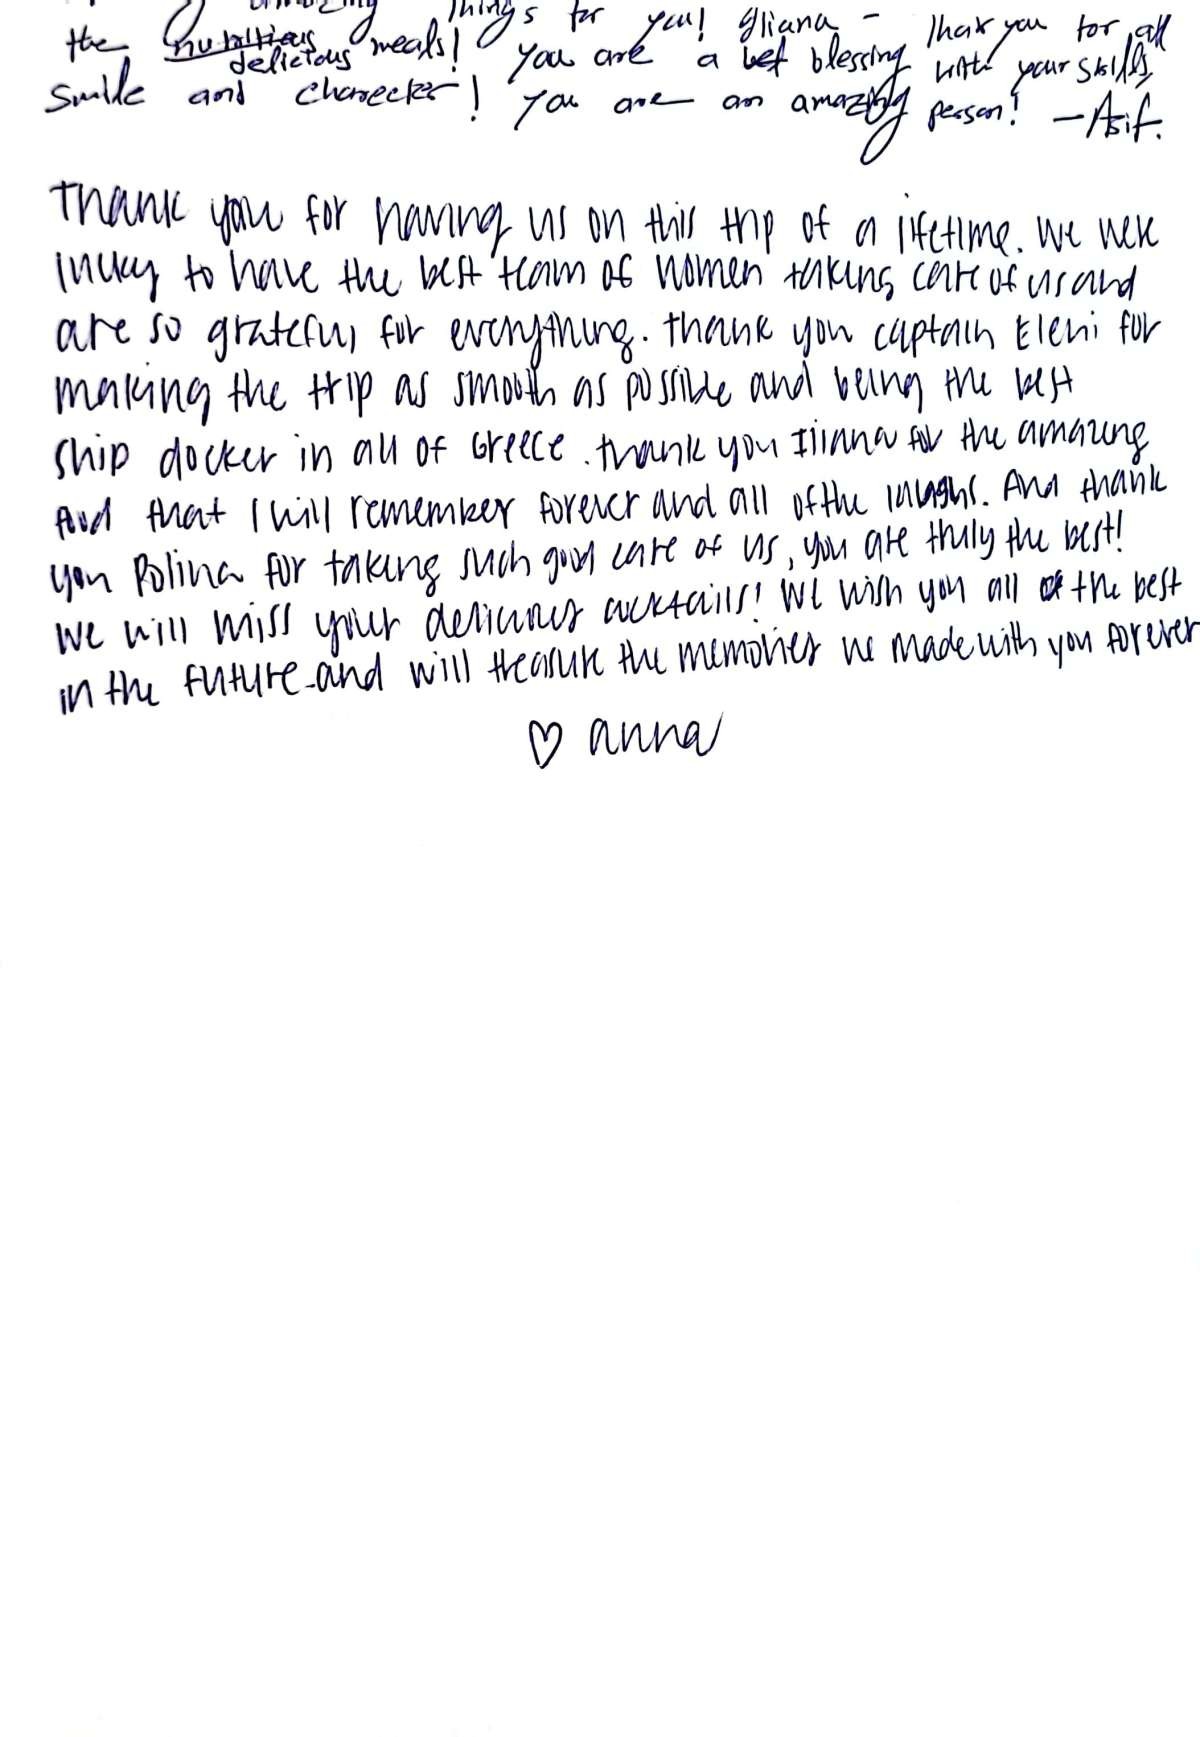 amazing things for you! Iliana - Thank you for all
the nutritious delicious meals! You are a bet blessing with your skills,
Smile and charecter! You are an amazing person! -Asif.
Thank you for having us on this trip of a lifetime. We were
lucky to have the best team of women taking care of us and
are so grateful for everything. Thank you captain Eleni for
making the trip as smooth as possible and being the best
ship docker in all of Greece. Thank you Iliana for the amazing
food that I will remember forever and all of the laughs. And thank
you Polina for taking such good care of us, you are truly the best!
We will miss your delicious cocktails! We wish you all the best
in the future and will treasure the memories we made with you forever
♡ anna